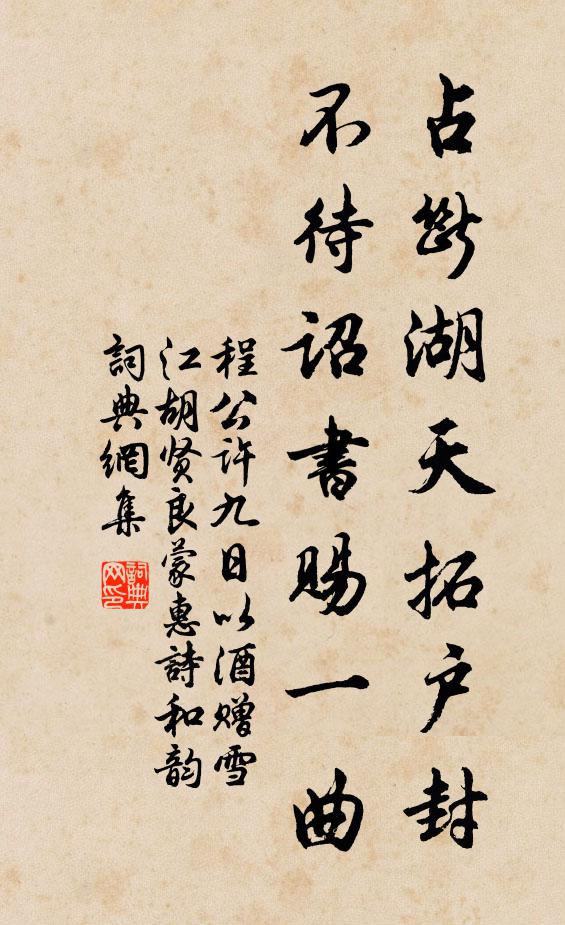 占斷湖天拓户封
不待詔書賜一曲
程公许九日以酒赠雪
江胡贤良蒙惠詩和韵
詞典網集
詞典网印